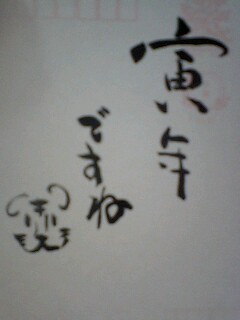 寅年
ですね